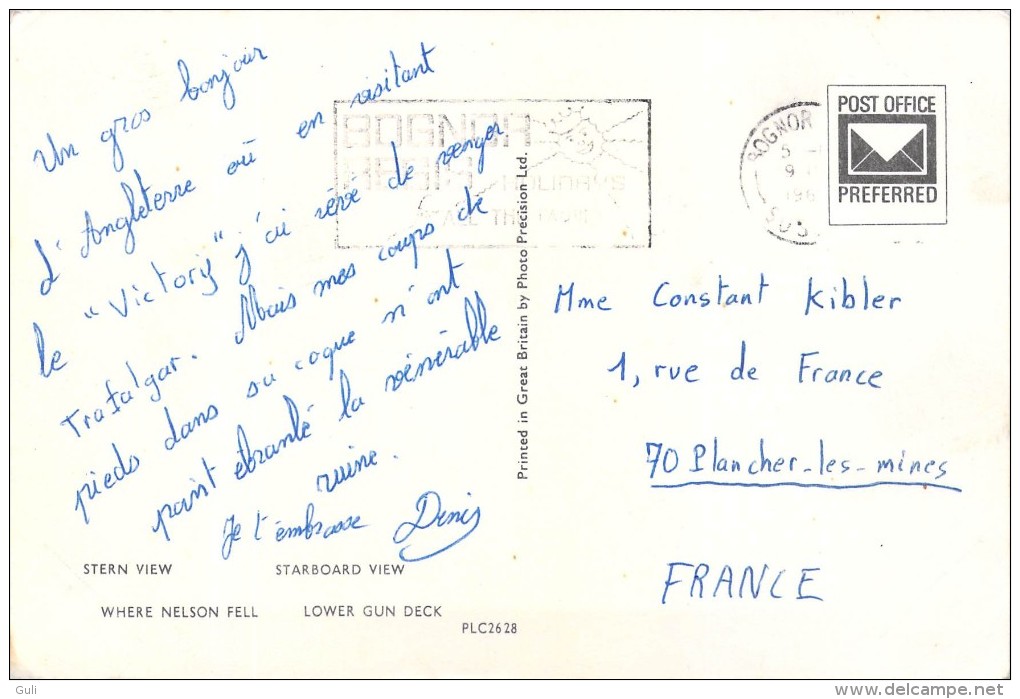 Un gros bonjour
d'Angleterre où en visitant
le "Victory" j'ai rêvé de venger
Trafalgar. Mais mes coups de
pieds dans sa coque n'ont
point ébranlé la vénérable
ruine.
Je t'embrasse Denis
STERN VIEW STARBOARD VIEW
WHERE NELSON FELL LOWER GUN DECK
PLC2628
Printed in Great Britain by Photo Precision Ltd.
BOGNOR
REGIS HOLIDAYS
BOGNOR
POST OFFICE
PREFERRED
Mme Constant Kibler
1, rue de France
70 Plancher-les-mines
FRANCE
Guli
delcampe.net